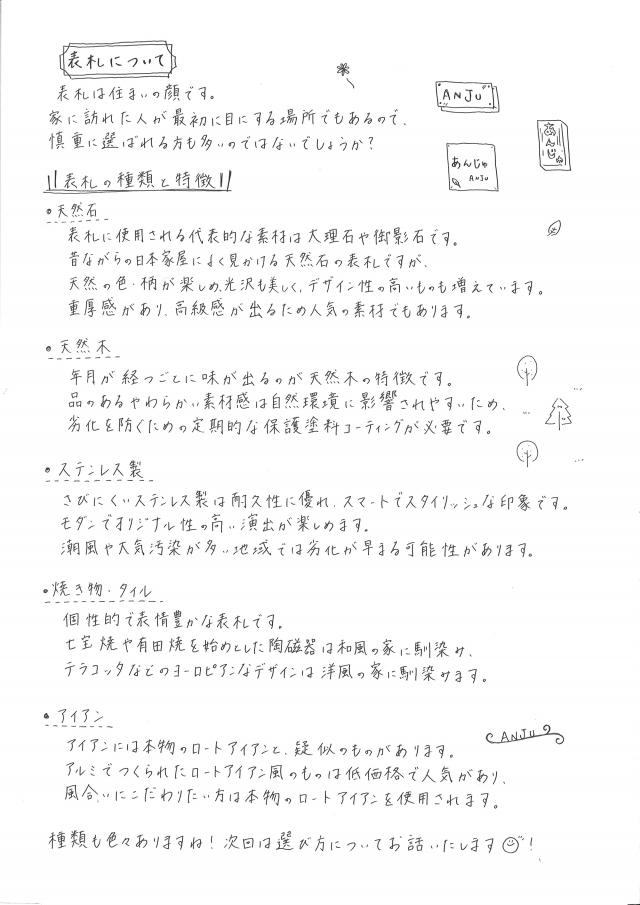 表札について
表札は住まいの顔です。
家に訪れた人が最初に目にする場所でもあるので、
慎重に選ばれる方も多いのではないでしょうか?
ANJU
あんじゅ
あんじゅ
ANJU
表札の種類と特徴
・天然石
表札に使用される代表的な素材は大理石や御影石です。
昔ながらの日本家屋によく見かける天然石の表札ですが、
天然の色・柄が楽しめ、光沢も美しく、デザイン性の高いものも増えています。
重厚感があり、高級感が出るため人気の素材でもあります。
・天然木
年月が経つごとに味が出るのが天然木の特徴です。
品のあるやわらかい素材感は自然環境に影響されやすいため、
劣化を防ぐための定期的な保護塗料コーティングが必要です。
・ステンレス製
さびにくいステンレス製は耐久性に優れ、スマートでスタイリッシュな印象です。
モダンでオリジナル性の高い演出が楽しめます。
潮風や大気汚染が多い地域では劣化が早まる可能性があります。
・焼き物・タイル
個性的で表情豊かな表札です。
七宝焼や有田焼を始めとした陶磁器は和風の家に馴染み、
テラコッタなどのヨーロピアンなデザインは洋風の家に馴染みます。
・アイアン
アイアンには本物のロートアイアンと、疑似のものがあります。
ANJU
アルミでつくられたロートアイアン風のものは低価格で人気があり、
風合いにこだわりたい方は本物のロートアイアンを使用されます。
種類も色々ありますね!次回は選び方についてお話いたします!